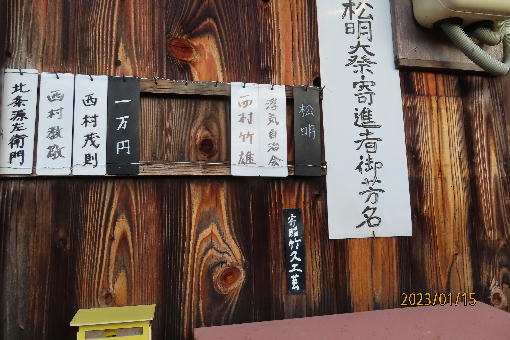 松明大祭寄進者御芳名
松明
浮気自治会
西村竹雄
一万円
西村茂則
西村教敬
北条源左衛門
寄贈竹久工芸
2023/01/15